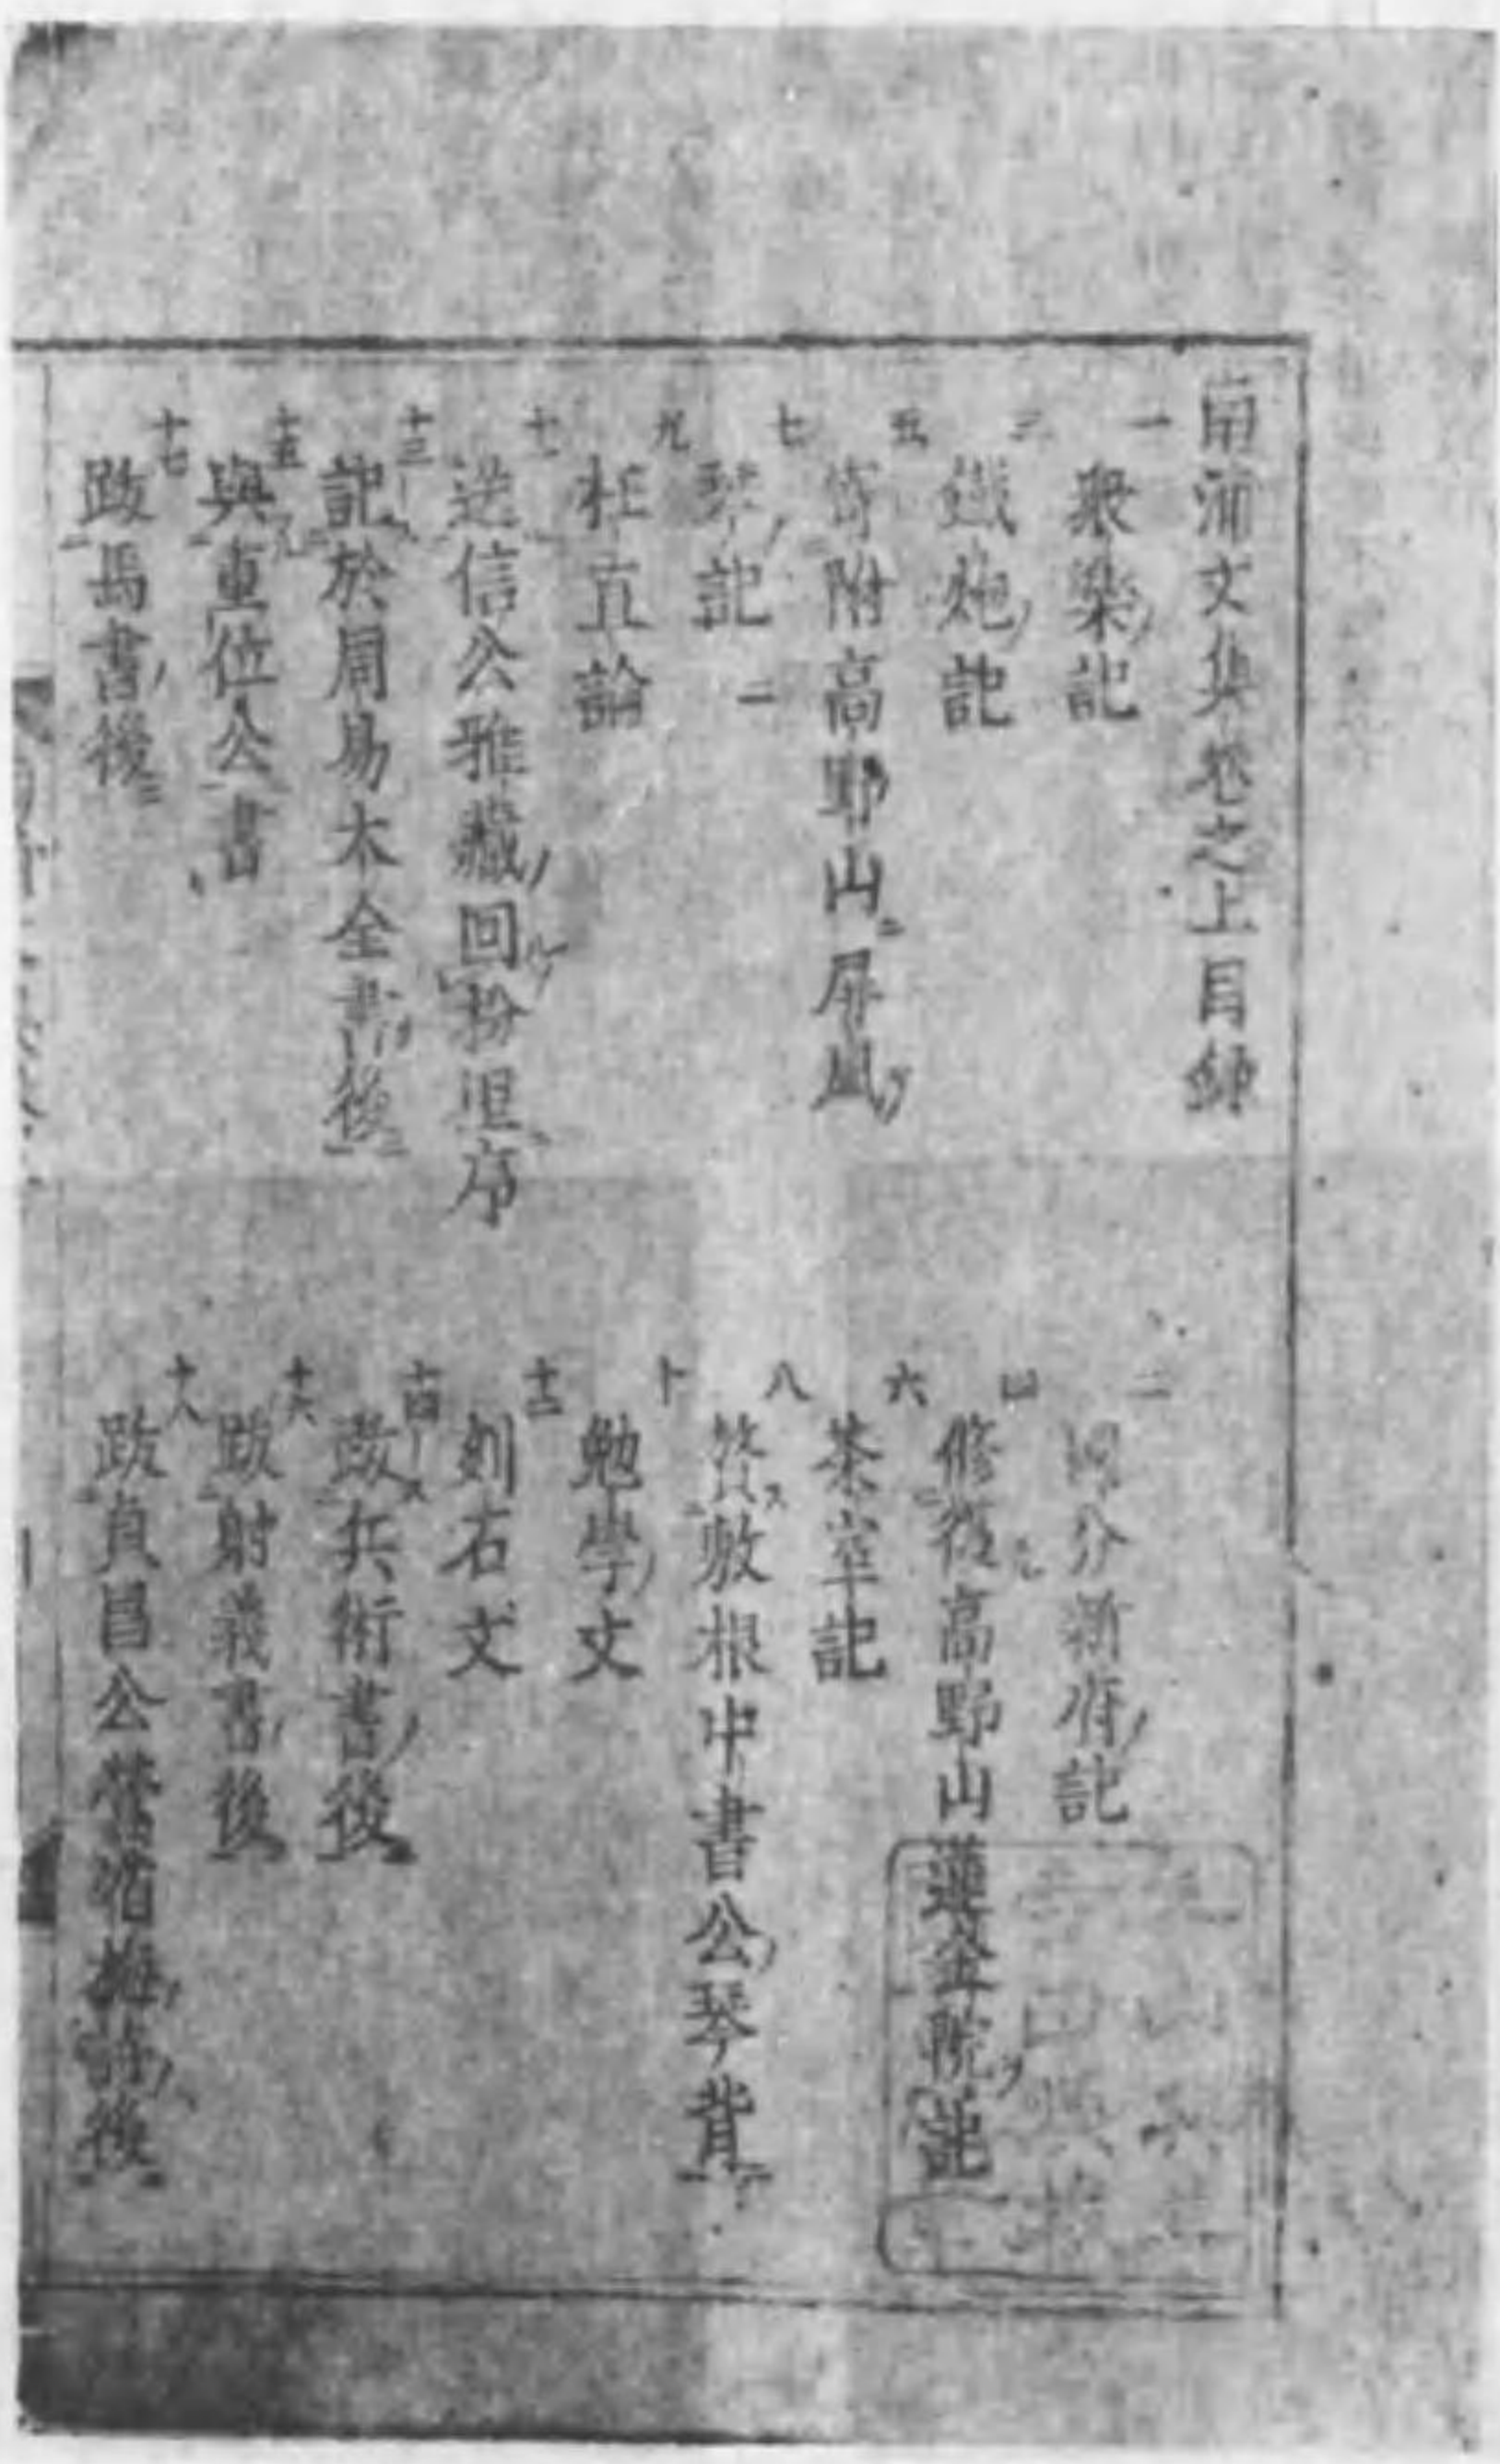 南浦文集卷之上目録
一 聚樂記
二 國分新府記
三 鐵炮記
四 修復高野山蓮金院記
五 寄附高野山屏風
六 茶室記
七 琴記 二
八 贊敷根中書公琴背
九 枉直論
十 勉學文
十一 送信公雅藏回枌里序
十二 刻石文
十三 記於周易大全書後
十四 跋兵術書後
十五 與重位公書
十六 跋射義書後
十七 跋馬書後
十八 跋貞昌公詩後